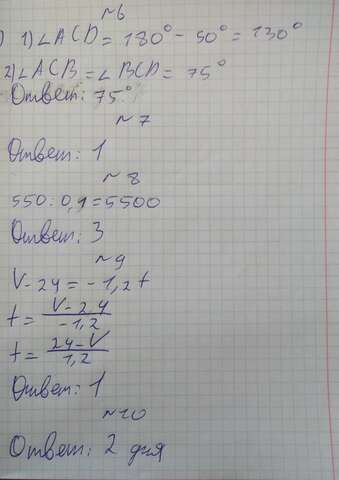 ~6
) 1) ∠ACD = 180° - 50° = 130°
2) ∠ACB = ∠BCD = 75°
Ответ: 75°
~7
Ответ: 1
~8
550 : 0,1 = 5500
Ответ: 3
~9
V - 24 = - 1,2 t
t = (V - 24)/(-1,2)
t = (24 - V)/(1,2)
Ответ: 1
~10
Ответ: 2 дня